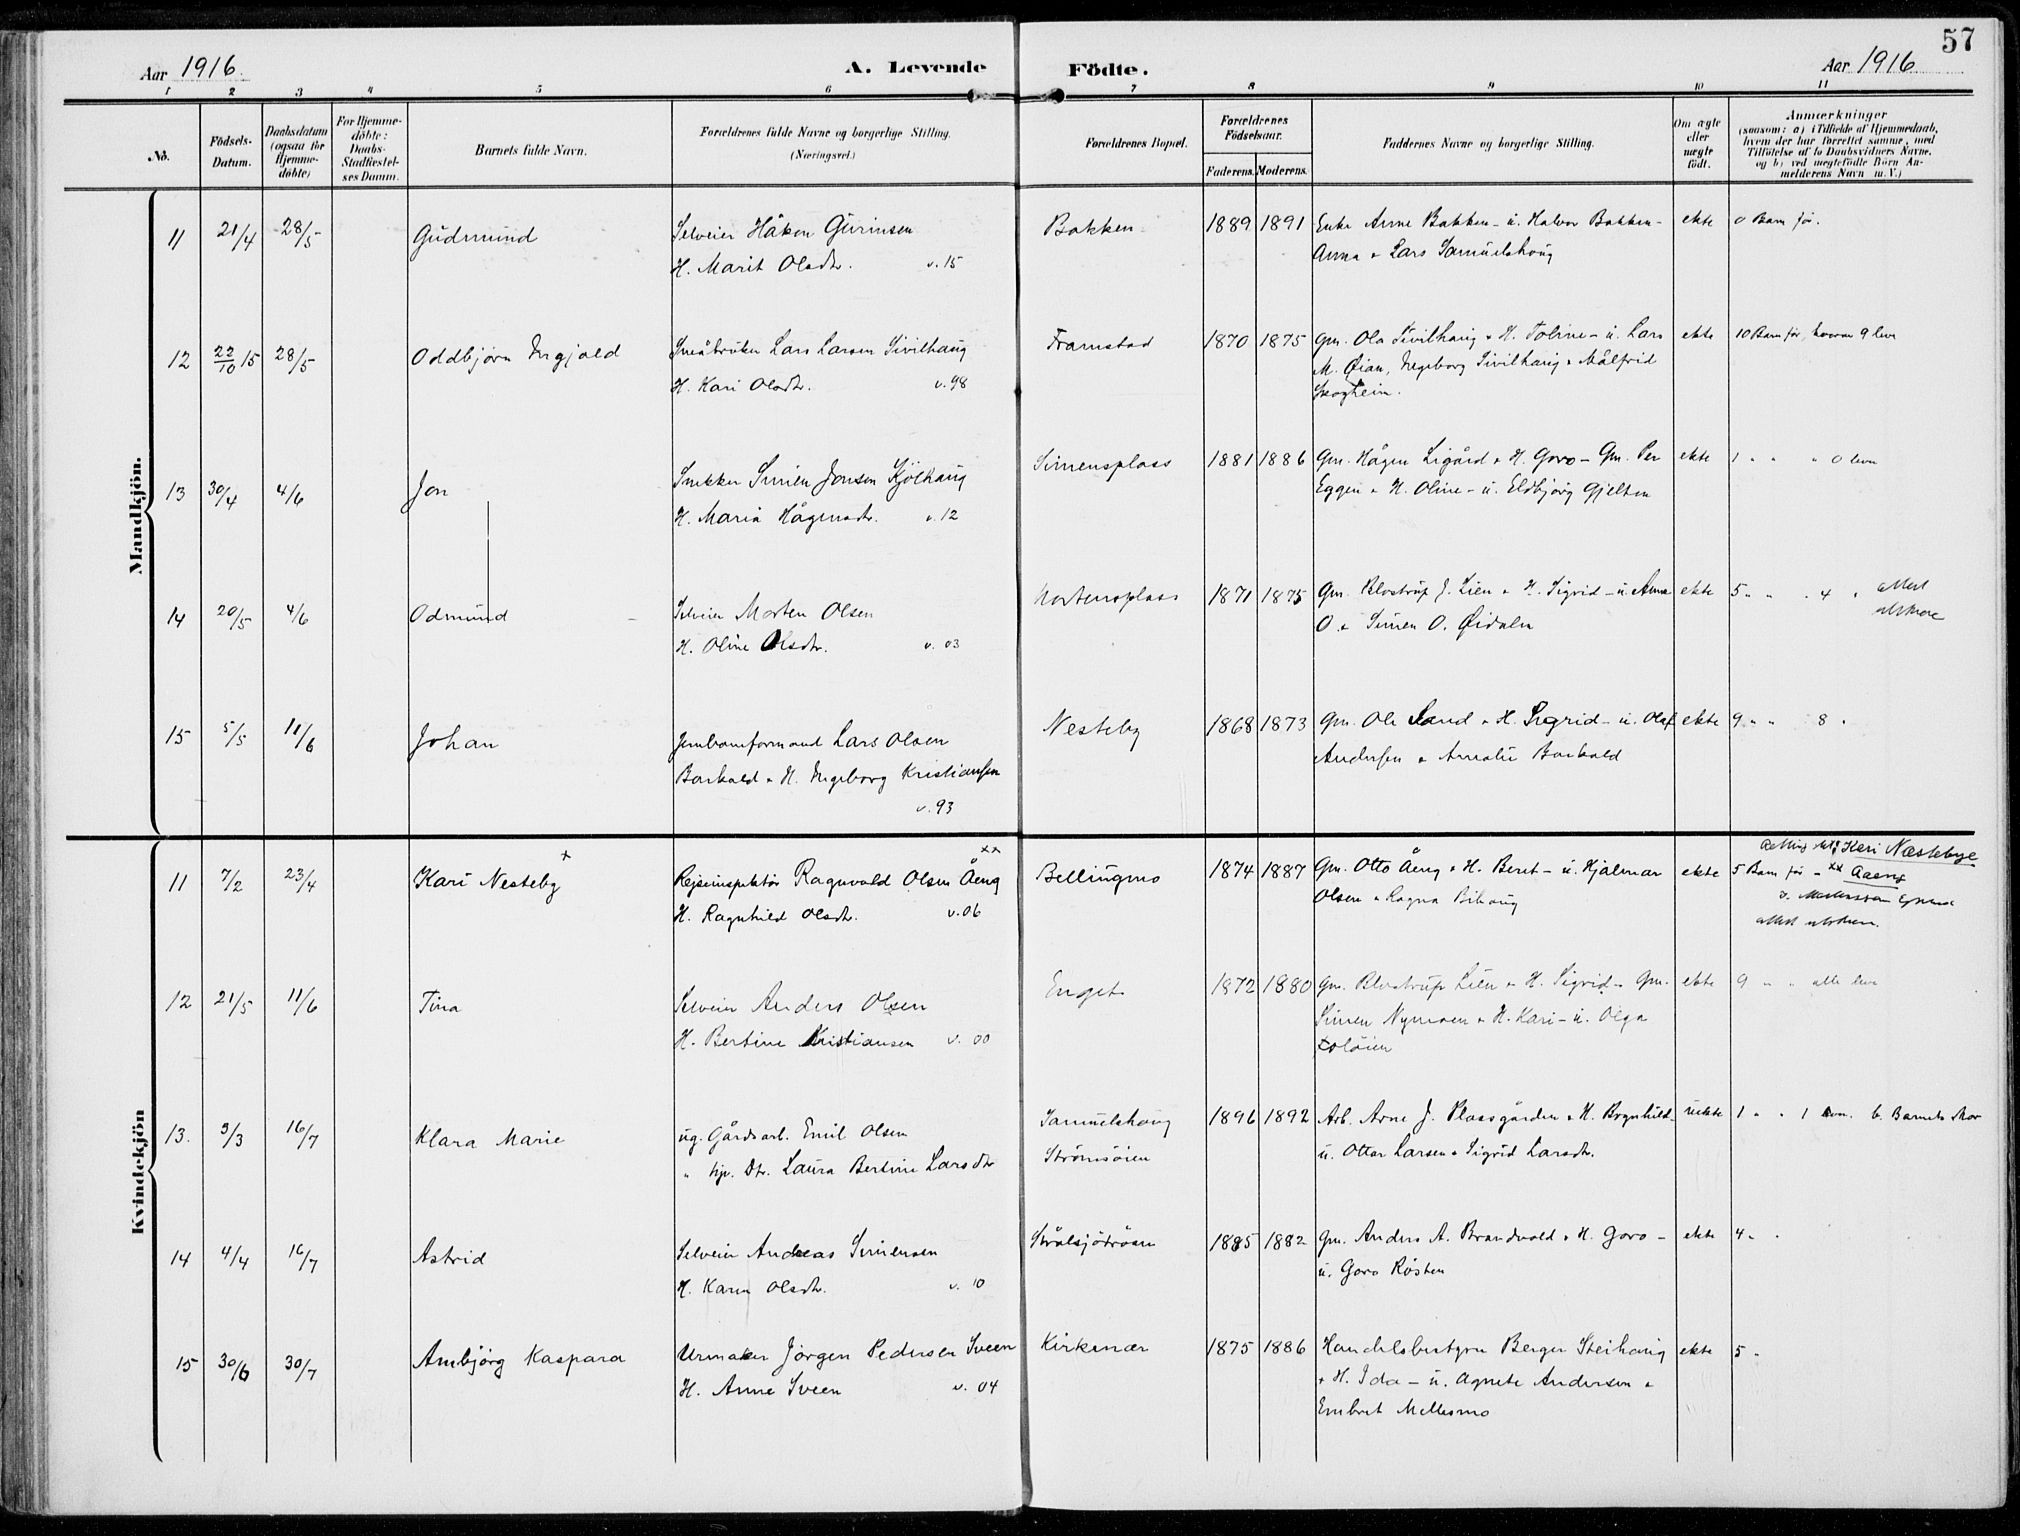 57
Aar 1916.
A. Levende Födte.
Aar 1916
1 2 3 4 5 6 7 8 9 10 11
No.
Födsels-Datum.
Daabsdatum (ogsaa for Hjemme-döbte)
For Hjemme-döbte: Daabs-Stadfæstel-ses Datum.
Barnets fulde Navn.
Forældrenes fulde Navne og borgerlige Stilling.
(Næringsvei.)
Forældrenes Bopæl.
Forældrenes Födselsaar.
Faderens. Moderens.
Faddernes Navne og borgerlige Stilling.
Om ægte eller uægte födt.
Anmærkninger
(saasom: a) i Tilfælde af Hjemmedaab,
hvem der har forrettet samme, med
Tilföielse af to Daabsvidners Navne.
og b) ved uægtefödte Börn An-
melderens Navn m. V.)
Mandkjön.
11 21/4 28/5 Gudmund Selveier Håkon Gurinsen Bakken 1889 1891 Enke Anne Bakken - u. Halvor Bakken - ekte 0 Barn før.
H. Marit Olsdtr. v. 15 Anna + Lars Samuelshoug
12 22/10 15 28/5 Oddbjörn Ingjald Småbruker Lars Larsen Sivilhaug Framstad 1870 1875 Gm. Ola Sivilhaug + H. Toline - u. Lars ekte 10 Barn før, hvorav 9 leve
H. Kari Olsdtr. v. 98 M. Øian, Ingeborg Sivilhaug + Målfrid
Skogheim.
13 30/4 4/6 Jon Snekker Simen Jonsen Kjölhaug Simensplass 1881 1886 Gm. Hågen Ligård + H. Goro - Gm. Per ekte 1 " " " 0 leve
H. Maria Hågensdtr. v. 12 Eggen + H. Oline - u. Eldbjørg Gjelten
14 20/5 4/6 Odmund Selveier Morten Olsen Mortensplass 1871 1875 Gm. Blostrup J. Lien + H. Sigrid - u. Anna ekte 5 " " " 4 "
H. Oline Olsdtr. v. 03 O. + Simen O. Øidalen
15 5/5 11/6 Johan Jernbaneformand Lars Olsen Nesteby 1868 1873 Gm. Ole Sand + H. Sigrid - u. Olaf ekte 9 " " 8 "
Barkald + H. Ingeborg Kristiansen Andersen + Amalie Barkald
v. 93
Kvindekjön
Kari Næstebye
11 7/2 23/4 Kari Nesteby + Reiseinspektør Ragnvald Olsen Åeng xx Bellingmo 1874 1887 Gm. Otto Åeng + H. Berit - u. Hjalmar ekte 5 Barn før - xx Aaeng
H. Ragnhild Olsdtr. v. 06 Olsen + Ragna Bihaug
12 21/5 11/6 Tina Selveier Anders Olsen Enget 1872 1880 Gm. Blostrup Lien + H. Sigrid - Gm. ekte 9 " " alle leve
H. Bertine Kristiansen v. 00 Simen Nymoen + H. Kari - u. Olga
13. 9/3 16/7 Klara Marie ug. Gårdsarb. Emil Olsen Samuelshoug 1896 1892 Arb. Arne J. Plassgården + H. Brynhild - uekte 1 " " 1 leve. b. Barnets Mor
" Dtr. Laura Bertine Larsdtr Strömsöien u. Otter Larsen + Sigrid Larsdtr.
14 4/4 16/7 Astrid Selveier Andreas Simensen 1885 1882 Gm. Anders A. Brandvold + H. Goro - ekte 4 " "
H. Karen Olsdtr. v. 10 u. Goro Røsten
15 30/6 30/7 Ambjörg Kaspara Urmaker Jörgen Pedersen Sveen Kirkenær 1875 1886 Handelsbestyrer Berger Steihaug ekte 5 "
H. Anne Sveen v. 04 + H. Ida - u. Agnete Andersen +
Embret Mellesmo